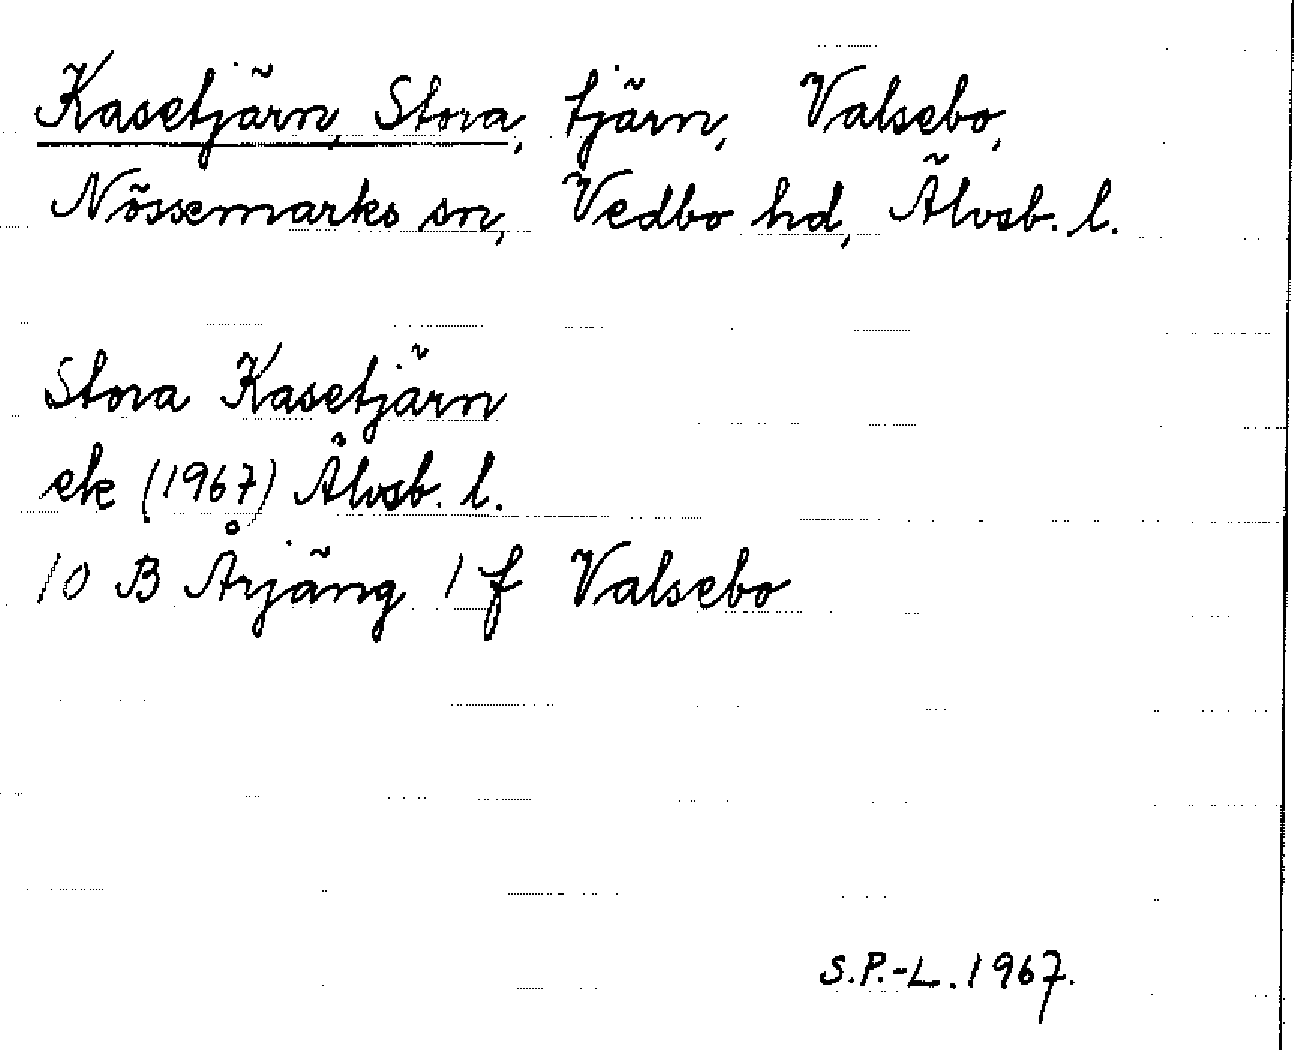 Kasetjärn, Stora, tjärn, Valsebo,
Nössemarks sn, Vedbo hd, Älvsb. l.
Stora Kasetjärn
ek (1967) Älvsb. l.
10 B Årjäng 1 f Valsebo
S.P.-L. 1967.